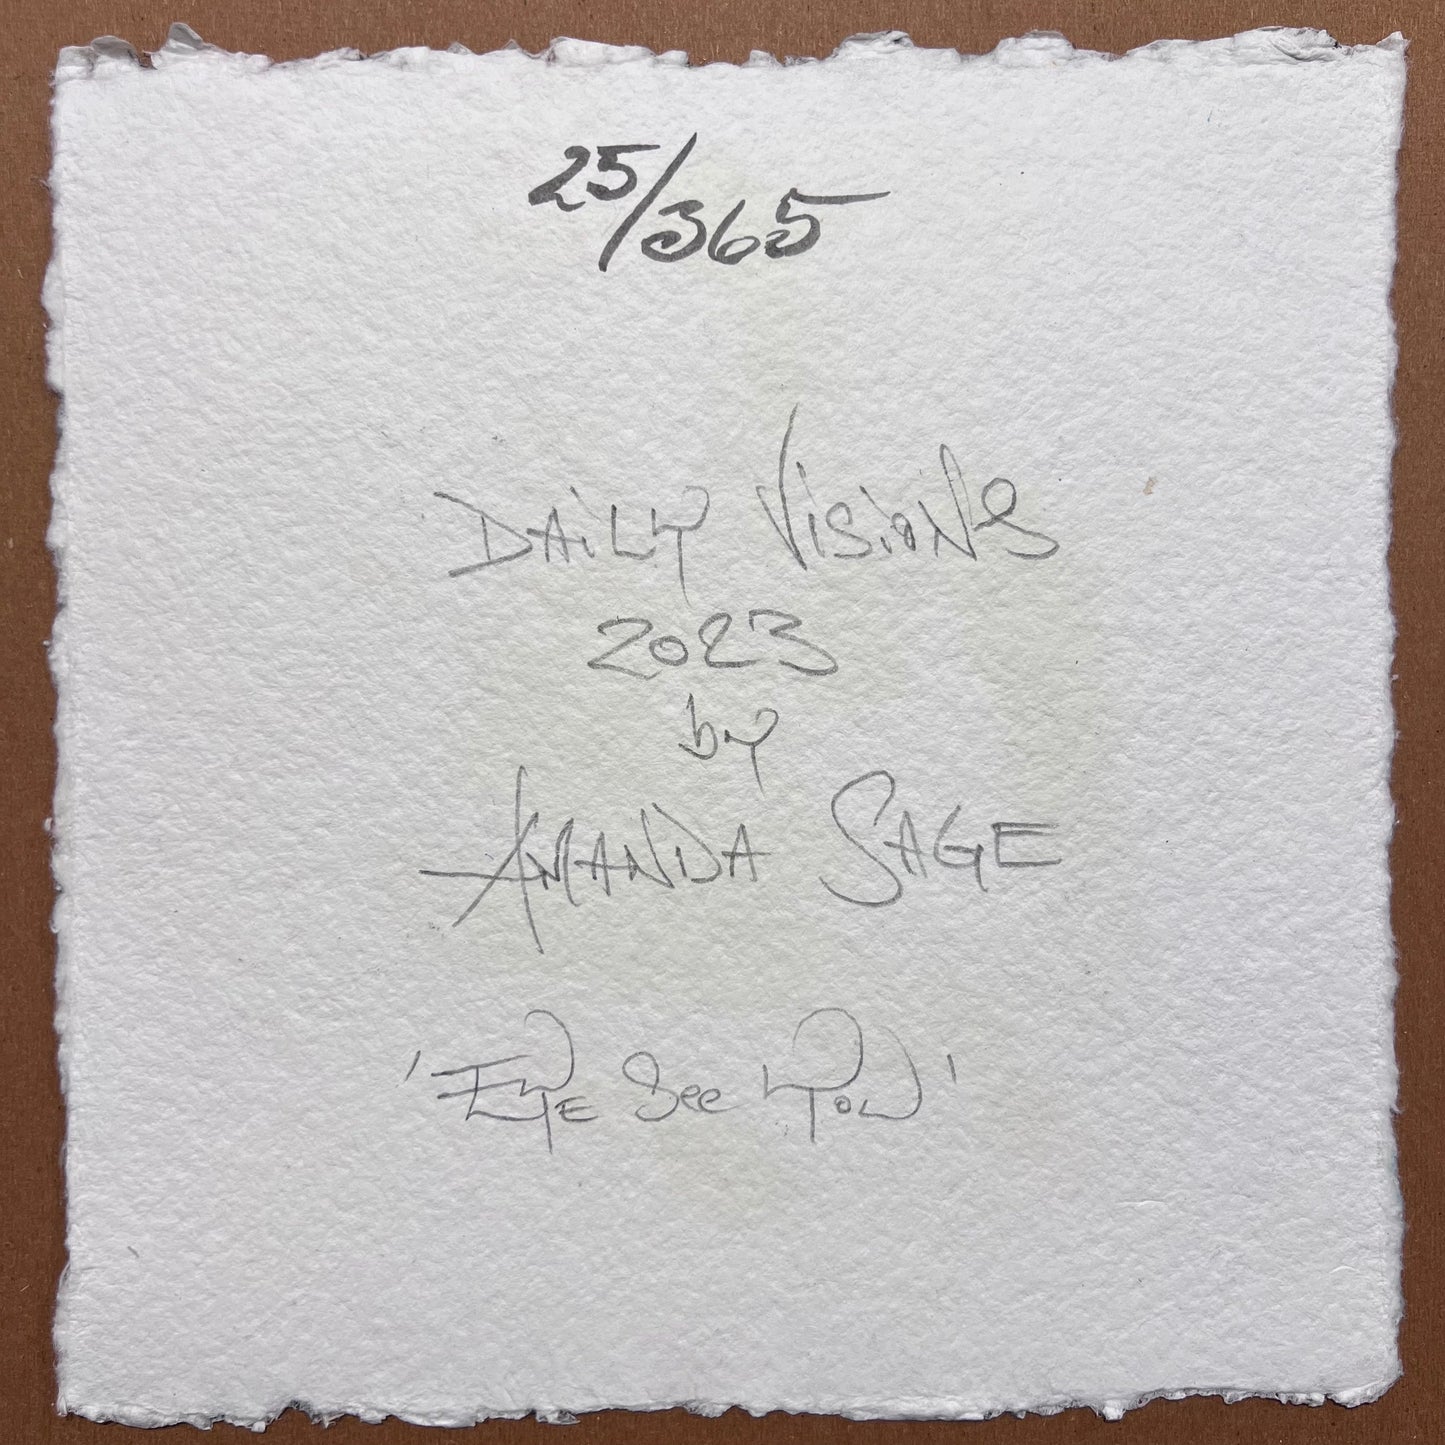 25/365
DAiLY VISiONS
2023
by
AMANDA SAGE
'EYE See YOU'